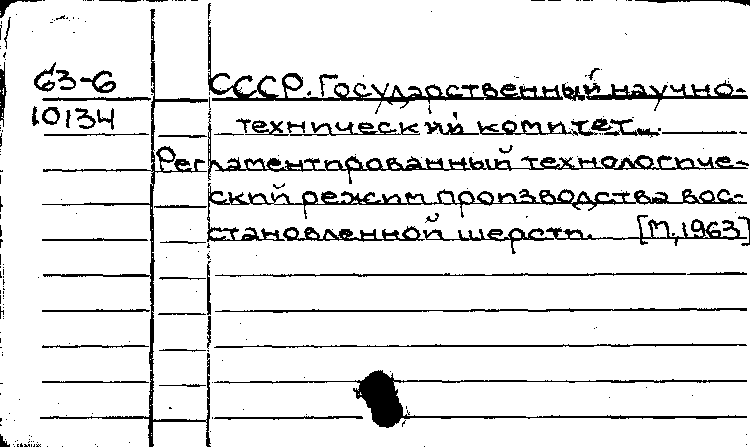 63-6 СССР. Государственный научно-
10134 технический комитет...
Регламентированный технологиче-
ский режим производства вос-
становленной шерсти. [М, 1963]